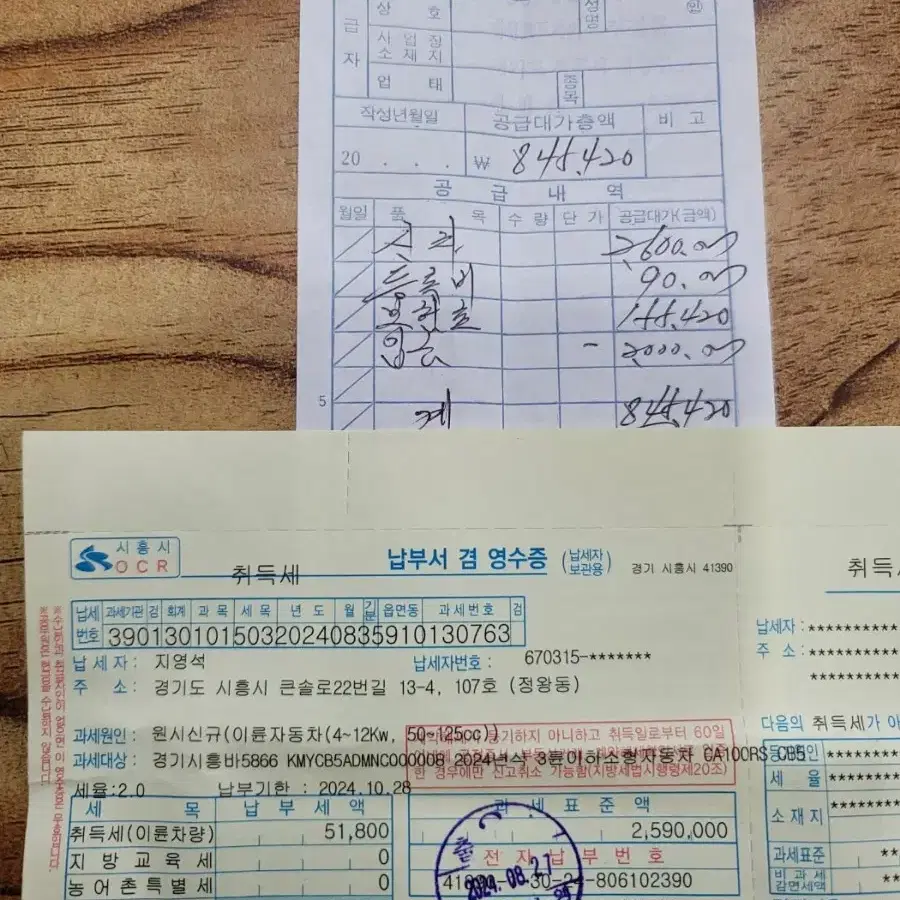 급
자
상 호
성명
㊞
사업장 소재지
업 태
종목
작성년월일 공급대가총액 비 고
20 . . . ₩ 845.420
공 급 내 역
월일 품 목 수 량 단 가 공급대가(금액)
2,600.00
등록비 90.00
보험료 155.420
입금 - 2000.00
5 계 845.420
시흥시
OCR
취득세
납부서 겸 영수증 (납세자 보관용) 경기 시흥시 41390
취득세
납세번호 과세기관 검 회계 과 목 세 목 년 도 월 기분 읍면동 과 세 번 호 검
3901301015032024083591013076​3
납 세 자 : 지영석 납세자번호 : 670315-*******
주 소 : 경기도 시흥시 큰솔로22번길 13-4, 107호 (정왕동)
과세원인 : 원시신규(이륜자동차(4~12Kw, 50~125cc))
과세대상 : 경기시흥바5866 KMYCB5ADMNC000008 2024년식 3륜이하소형자동차 CA100RS-CB5
포기하지 아니하고 취득일로부터 60일
한 경우에만 신고취소 가능함(지방세법시행령제20조)
세율:2.0 납부기한 : 2024.10.28
세 목 납 부 세 액 과 세 표 준 액
취득세(이륜차량) 51,800 2,590,000
지 방 교 육 세 0 전 자 납 부 번 호
농어촌특별세 0 30-24-806102390
2024.08.27
납세자 : **********
주 소 : **********
다음의 취득세가 아
세 율
소 재 지
과세표준
비 과 세 감면세액